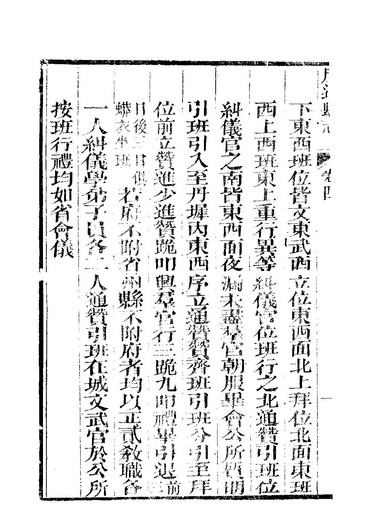 卷四
下東西班位皆文東武西立位東西面北上拜位北面東班
西上西班東上重行異等糾儀官位班行之北通贊引班位
糾儀官之南皆東西面夜漏未盡羣官朝服畢會公所質明
引班引入至丹墀內東西序立通贊贊齊班引班分引至拜
位前立贊進少進贊跪叩興羣官行三跪九叩禮畢引退三前
日後三日俱
蟒衣坐班若府不附省州縣不附府者均以正貳敎職各
一人糾儀學弟子員各二人通贊引班在城文武官於公所
按班行禮均如省會儀